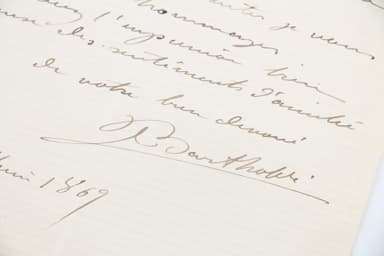 je vous
hommages
l'expression bien
des sentiments d'amitié
de votre bien dévoué
Bartholdi
1869